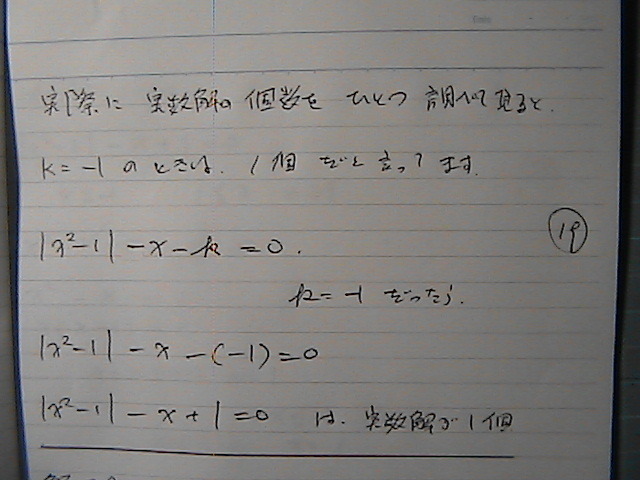 実際に 実数解の 個数を ひとつ 調べて見ると、
k=-1 のときは、1個 だと言ってます。
|x²-1|-x-k=0.
⑲
k=-1 だったら、
|x²-1|-x-(-1)=0
|x²-1|-x+1=0 は、実数解が1個